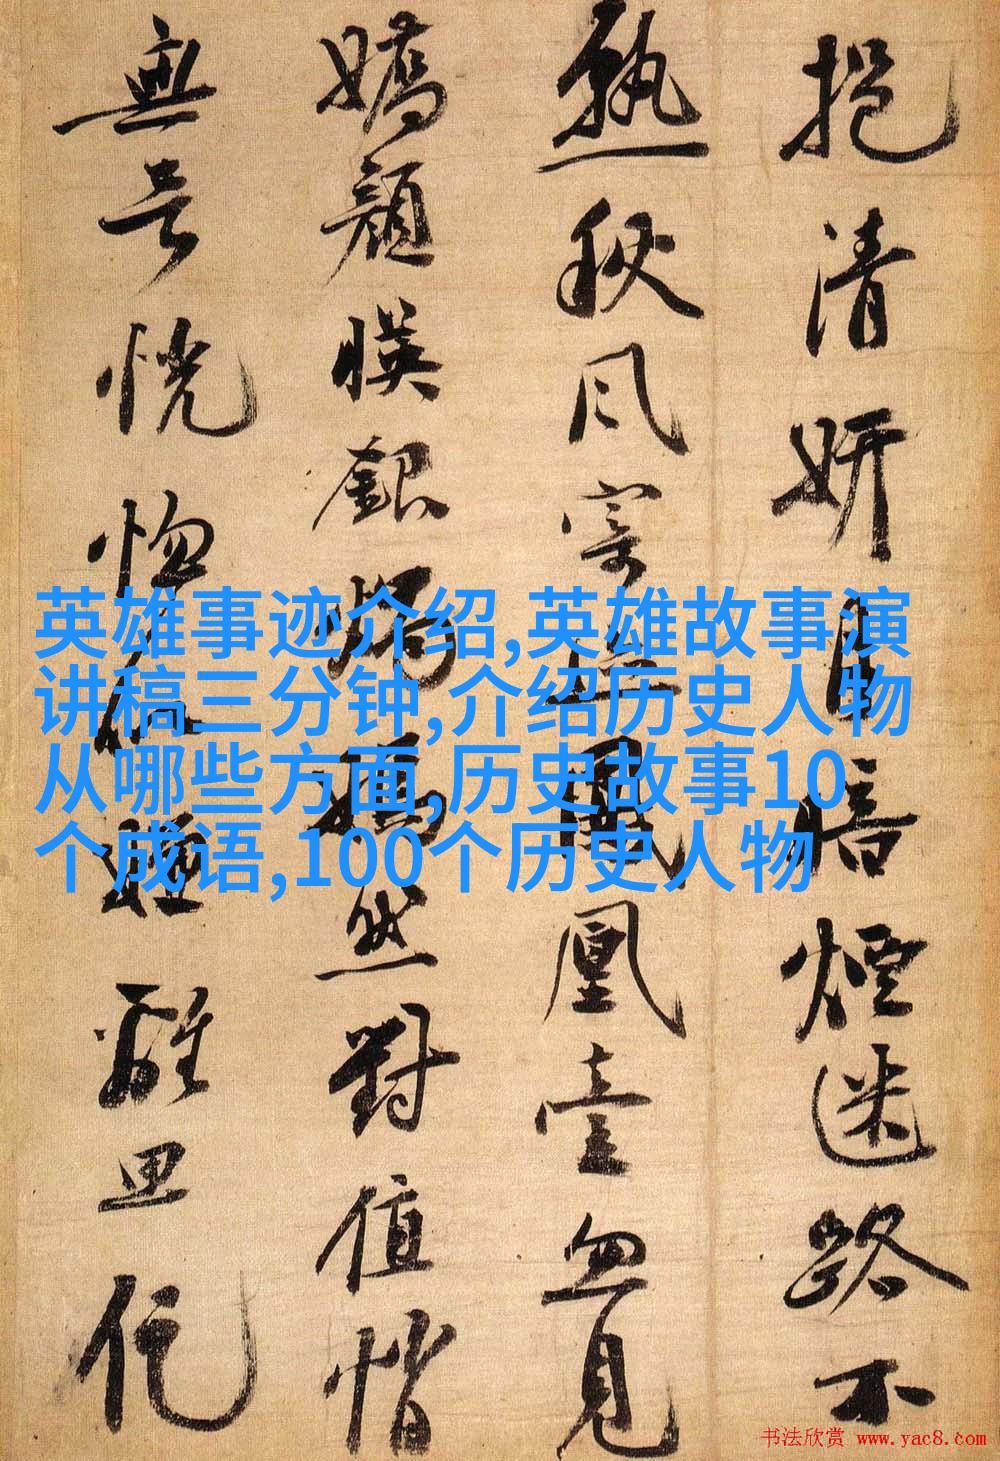 挹清妍月暗煙迷路不
秋風鳳凰臺忽見
嬌顏暎銀燭嫣然對值悄
無言恍惚難思
英雄事迹介绍,英雄故事演
讲稿三分钟,介绍历史人物
从哪些方面,历史故事10
个成语,100个历史人物
书法欣赏 www.yac8.com